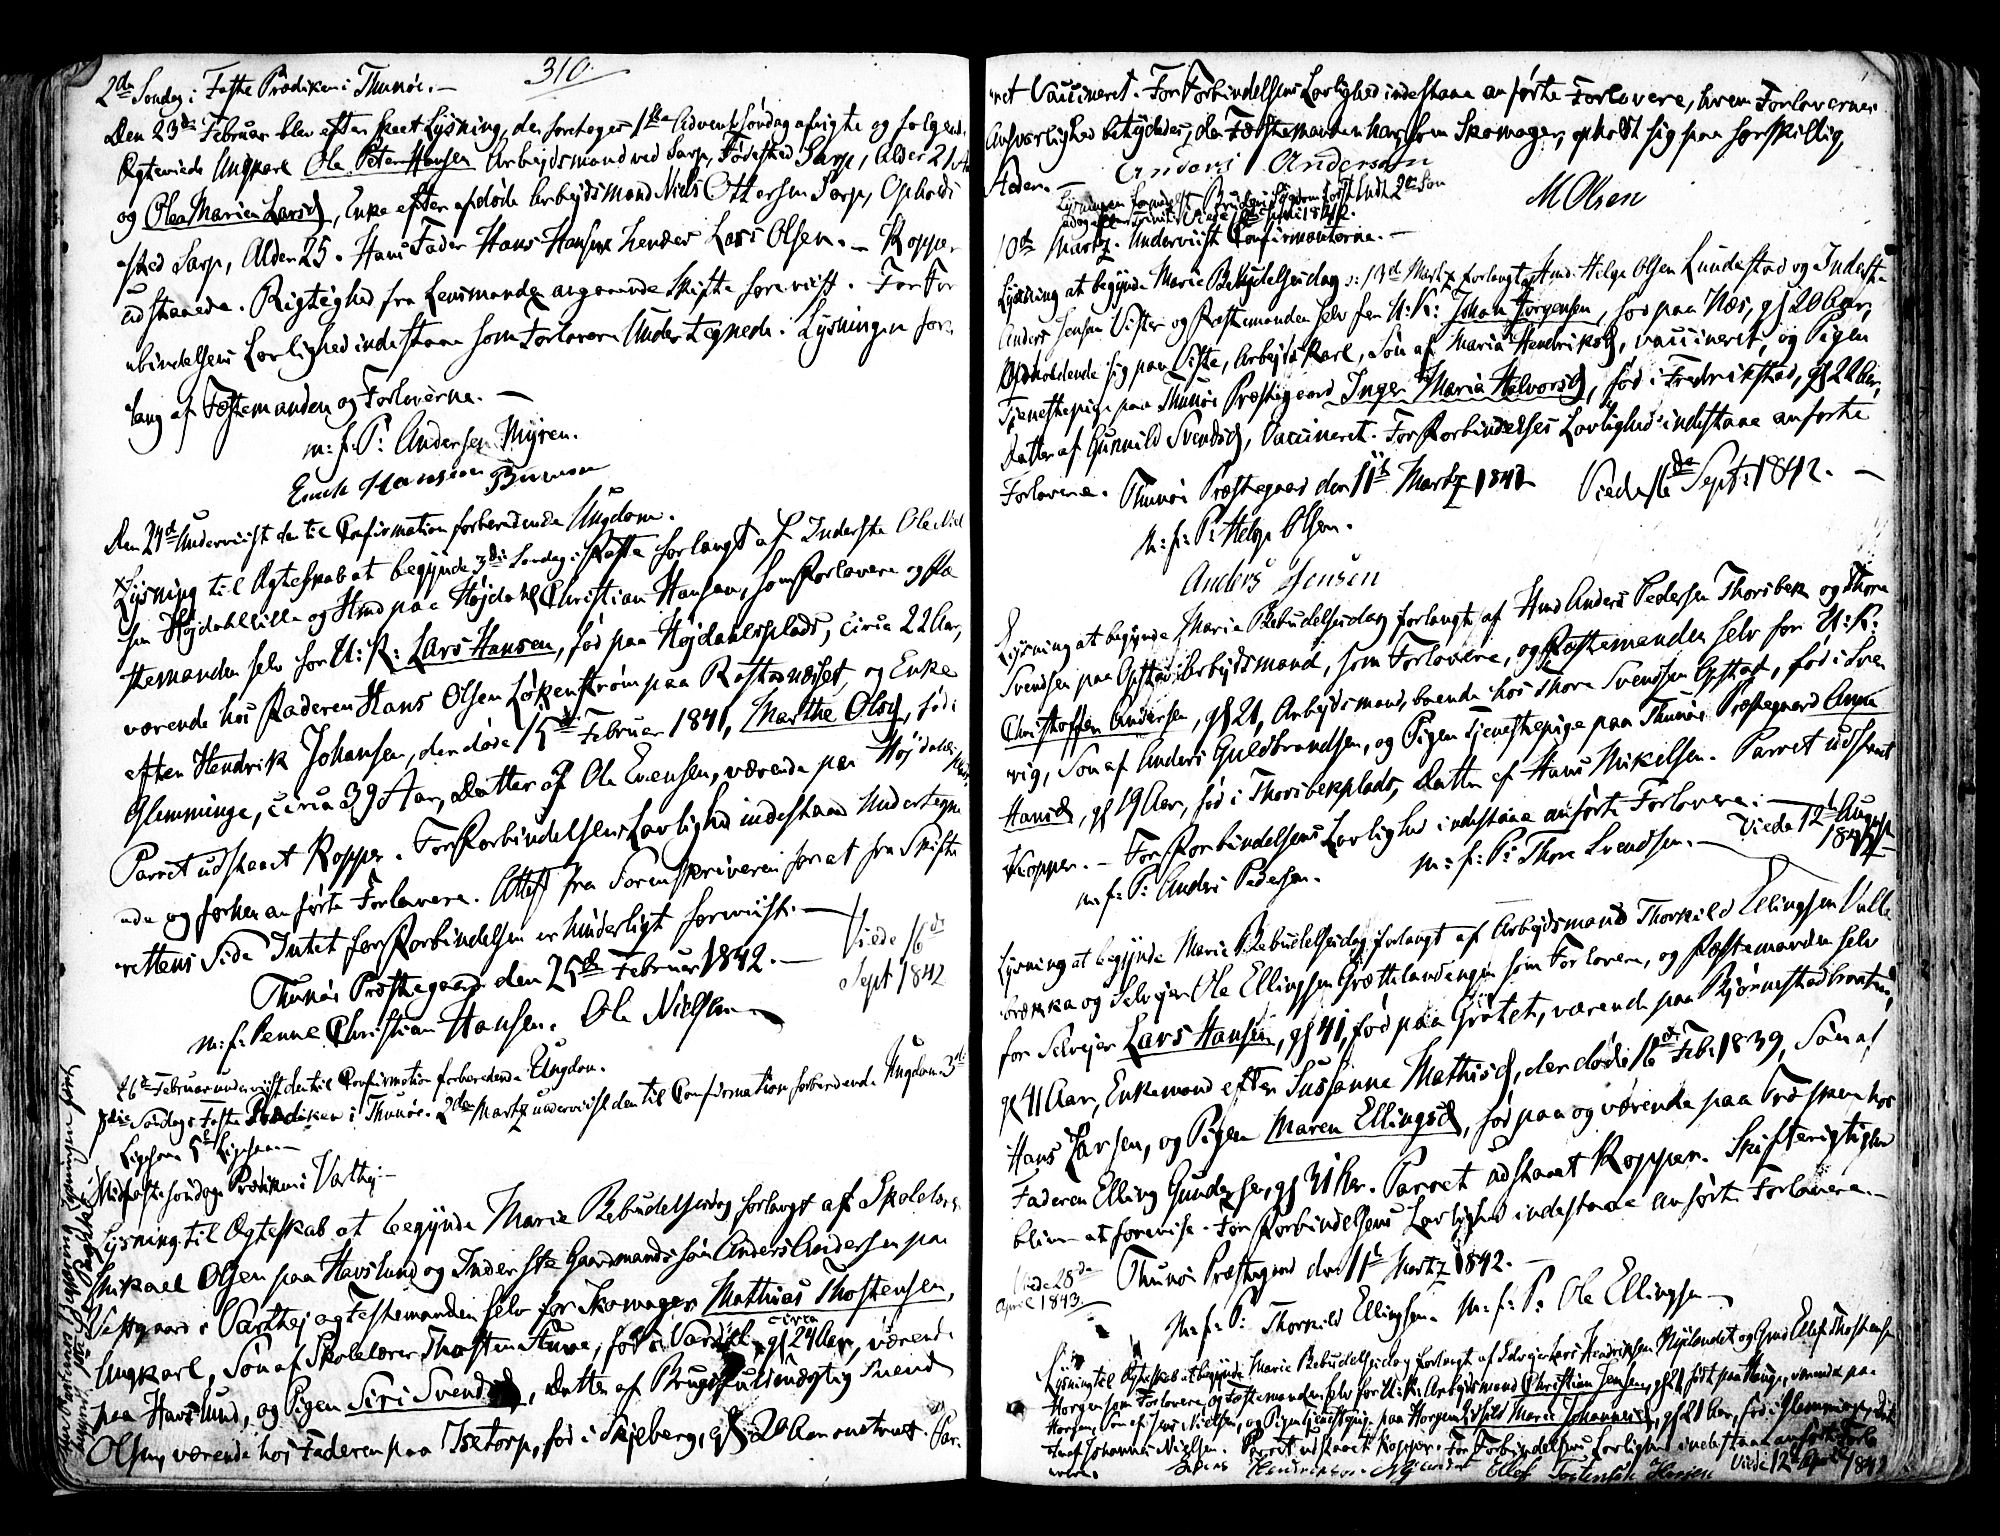 310.
2den Søndag i Faste Prædiken i Thunøe. —
Den 23de Februar blev efter skeet Lysning, der foretoges 1ste Advents Søndag afvigte og følgend.
Ægteviede Ungkarl Ole Peter Hansen Arbeydsmand ved Sarp, Fødested Sarp, Alder 21 Aar
og Olea Marien Larsd, Enke efter afdøde Arbeydsmand Niels Ottersen Sarp, Opholds
sted Sarp, Alder 25. Hans Fader Hans Hansen hendes Lars Olsen. — Kopper
udstaaede. Rigtighed fra Lensmanden angaaende Skifte foreviist. For For
bindelsens Lovlighed indestaae som Forlovere Undertegnede. Lysningen for
lang af Fæstemanden og Forloverne. —
m: f: P: Andersen Myren.
Erick Hanssen
Den 24de Underviist den til Confirmation forberedende Ungdom.
Lysning til Ægteskab at begynde 3die Søndag i Faste forlangt af Inderste Ole Niel
sen Højdahl lille og Hmd paa Højdahl Christian Hansen, som Forlovere og Fæ
stemanden selv for U: K: Lars Hansen, fød paa Højdahlsplads, circa 22 Aar,
værende hos Faderen Hans Olsen Løkenstrøm paa Rostadnæsset, og Enke
efter Hendrik Johansen, der døde 15de Februar 1841, Marthe Olsd, fød i
Glemminge, circa 39 Aar, Datter af Ole Evensen, værende paa Højdahls plads
Parret udstaaet Kopper. For Forbindelsens Lovlighed indestaae Undertegne
de og forhen anførte Forlovere. Attest fra Sorenskriveren for at fra Skifte
rettens Side Intet for Forbindelsen er hinderligt foreviist. —
Thunøe Præstegaard den 25de Februar 1842. —
Viede 16de
Sept 1842
m: f: Penne Christian Hansen. Ole Nielsen
26de Februar underviist den til Confirmation forberedende Ungdom.
3die Søndag i Faste Prædiken i Thunøe. 2den Martz underviist den til Confirmation forberedende Ungdom. 3de
Ligchom 5te Ligchom
Midfastesøndag Prædiken i Varthej —
Lysning til Ægteskab at begynde Marie Bebudelsesdag forlangt af Skolelær.
Mikael Olsen paa Hafslund og Inderste Gaardmandssøn Anders Andersen paa
Vestgaard i Varthej og Festemanden selv for Skomager Mathias Thostensen,
Ungkarl, Søn af Skolelærer Thosten Sture, fød i circa gl 24 Aar, værende
paa Havslund, og Pigen Siri Svendsd, Datter af Brugsfuldmægtig Svend
Olsen, værende hos Faderen paa Isetorp, fød i Skjeberg, gl 20 Aar Par-
ret Vaccineret. For Forbindelsens Lovlighed indestaae anførte Forlovere, hvem Forlovernes
Ansvarlighed betydedes, da Fæstemanden har, som Skomager, opholdt sig paa forskiellig
Steder. — Anders Anderssen
M Olsen
Viede 1842.
10de Martz. Underviist Confirmanterne. —
Lysning at begynde Marie Bebudelsesdag forlangt Hmd. Helge Olsen Lundestad og Inderste
Anders Jensen Viste og Fæstemanden selv for U: K: Johan Jørgensen, fød paa Næs, gl 20 Aar,
Opholdende sig paa Viste, Arbejdskarl, Søn af Maria Hendriksd, vaccineret, og Pigen
Tjenestepige paa Thunøe Præstegaard Inger Maria Halvorsd, fød i Fredrikstad, gl 22 Aar,
Datter af Gunnild Svendsd, Vaccineret. For Forbindelses Lovlighed indestaae anførte
Forlovere. Thunøe Præstegaard den 11te Martz 1842 Viede 16de Sept: 1842. —
m: f: P: Helge Olsen.
Anders Jensen
Lysning at begynde Marie Bebudelsesdag forlangt af Hmd Anders Pedersen Thorsbek og Thore
Svendsen paa Opstad Arbejdsmand, som Forlovere, og Fæstemanden selv for U: K:
Christoffer Andersen, gl 21, Arbejdsmand, boende hos Thore Svendsen Opstad, fød i Sve
rig, Søn af Anders Guldbrandsen, og Pigen Tjenestepige paa Thunøe Præstegaard Anne
Hansd, gl 19 Aar, fød i Thorsbekplads, Datter af Hans Mikelsen. Parret udstaaet
Kopper. — For Forbindelsens Lovlighed indestaae anførte Forlovere. —
m: f: P: Anders Pedersen. m: f: P: Thore Svendsen. — Viede 12te August
1842
Lysning at begynde Marie Bebudelsesdag forlangt af Arbejdsmand Thorkild Ellingsen Valle
brækka og Selvejer Ole Ellingsen Grættelandengen som Forlovere, og Fæstemanden selv
for Selvejer Lars Hansen, gl 41, fød paa Grøtet, værende paa Bjørnestadbraaten,
gl 41 Aar, Enkemand efter Sussanne Mathisd, der døde 16de Feb: 1839, Søn af
Hans Larsen, og Pigen Maren Ellingsd, fød paa og værende paa hos
Faderen Elling Gundersen, gl 31 Aar. Parret udstaaet Kopper. Skifterigtighed
bliver at forevise. For Forbindelsens Lovlighed indestaae anførte Forlovere. —
Thunøe Præstegaard den 11te Martz 1842. —
Viede 28de
April 1843
m: f: P: Thorkild Ellingsen. m: f: P: Ole Ellingsen
Lysning til Ægteskab at begynde Marie Bebudelsesdag forlangt af Selvejer Lars Hendriksen Nylandet og Gmd Ellef Thostensen
Horgen som Forlovere og Fæstemanden selv for U: K: Arbejdsmand Christian Jensen, gl fød paa Hauge, værende paa
Horgen, Søn af Jens Nielsen, og Pigen tjenestepige paa Horgen Maria Johannesd, gl 21 Aar, fød i Glemminge, Dat
ter af Johannes Nielsen. Parret udstaaet Kopper. For Forbindelsens Lovlighed indestaae anførte Forlo
vere. Hendriksen Nylandet Ellef Tostensen Horgen Viede 12te April 1842